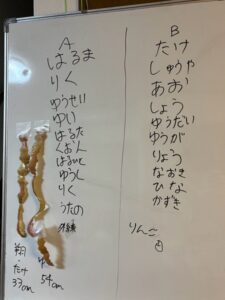 A
はるま
りく
ゆうせい
ゆい
はるた
くおん
はるひと
ゆうし
りく
うたの
翔
たけ
33cm
ゆ
54cm
B
たけ
しゅうや
あお
しょう
ゆうだい
ゆうが
りょう
なおき
ひな
かずき
りんご